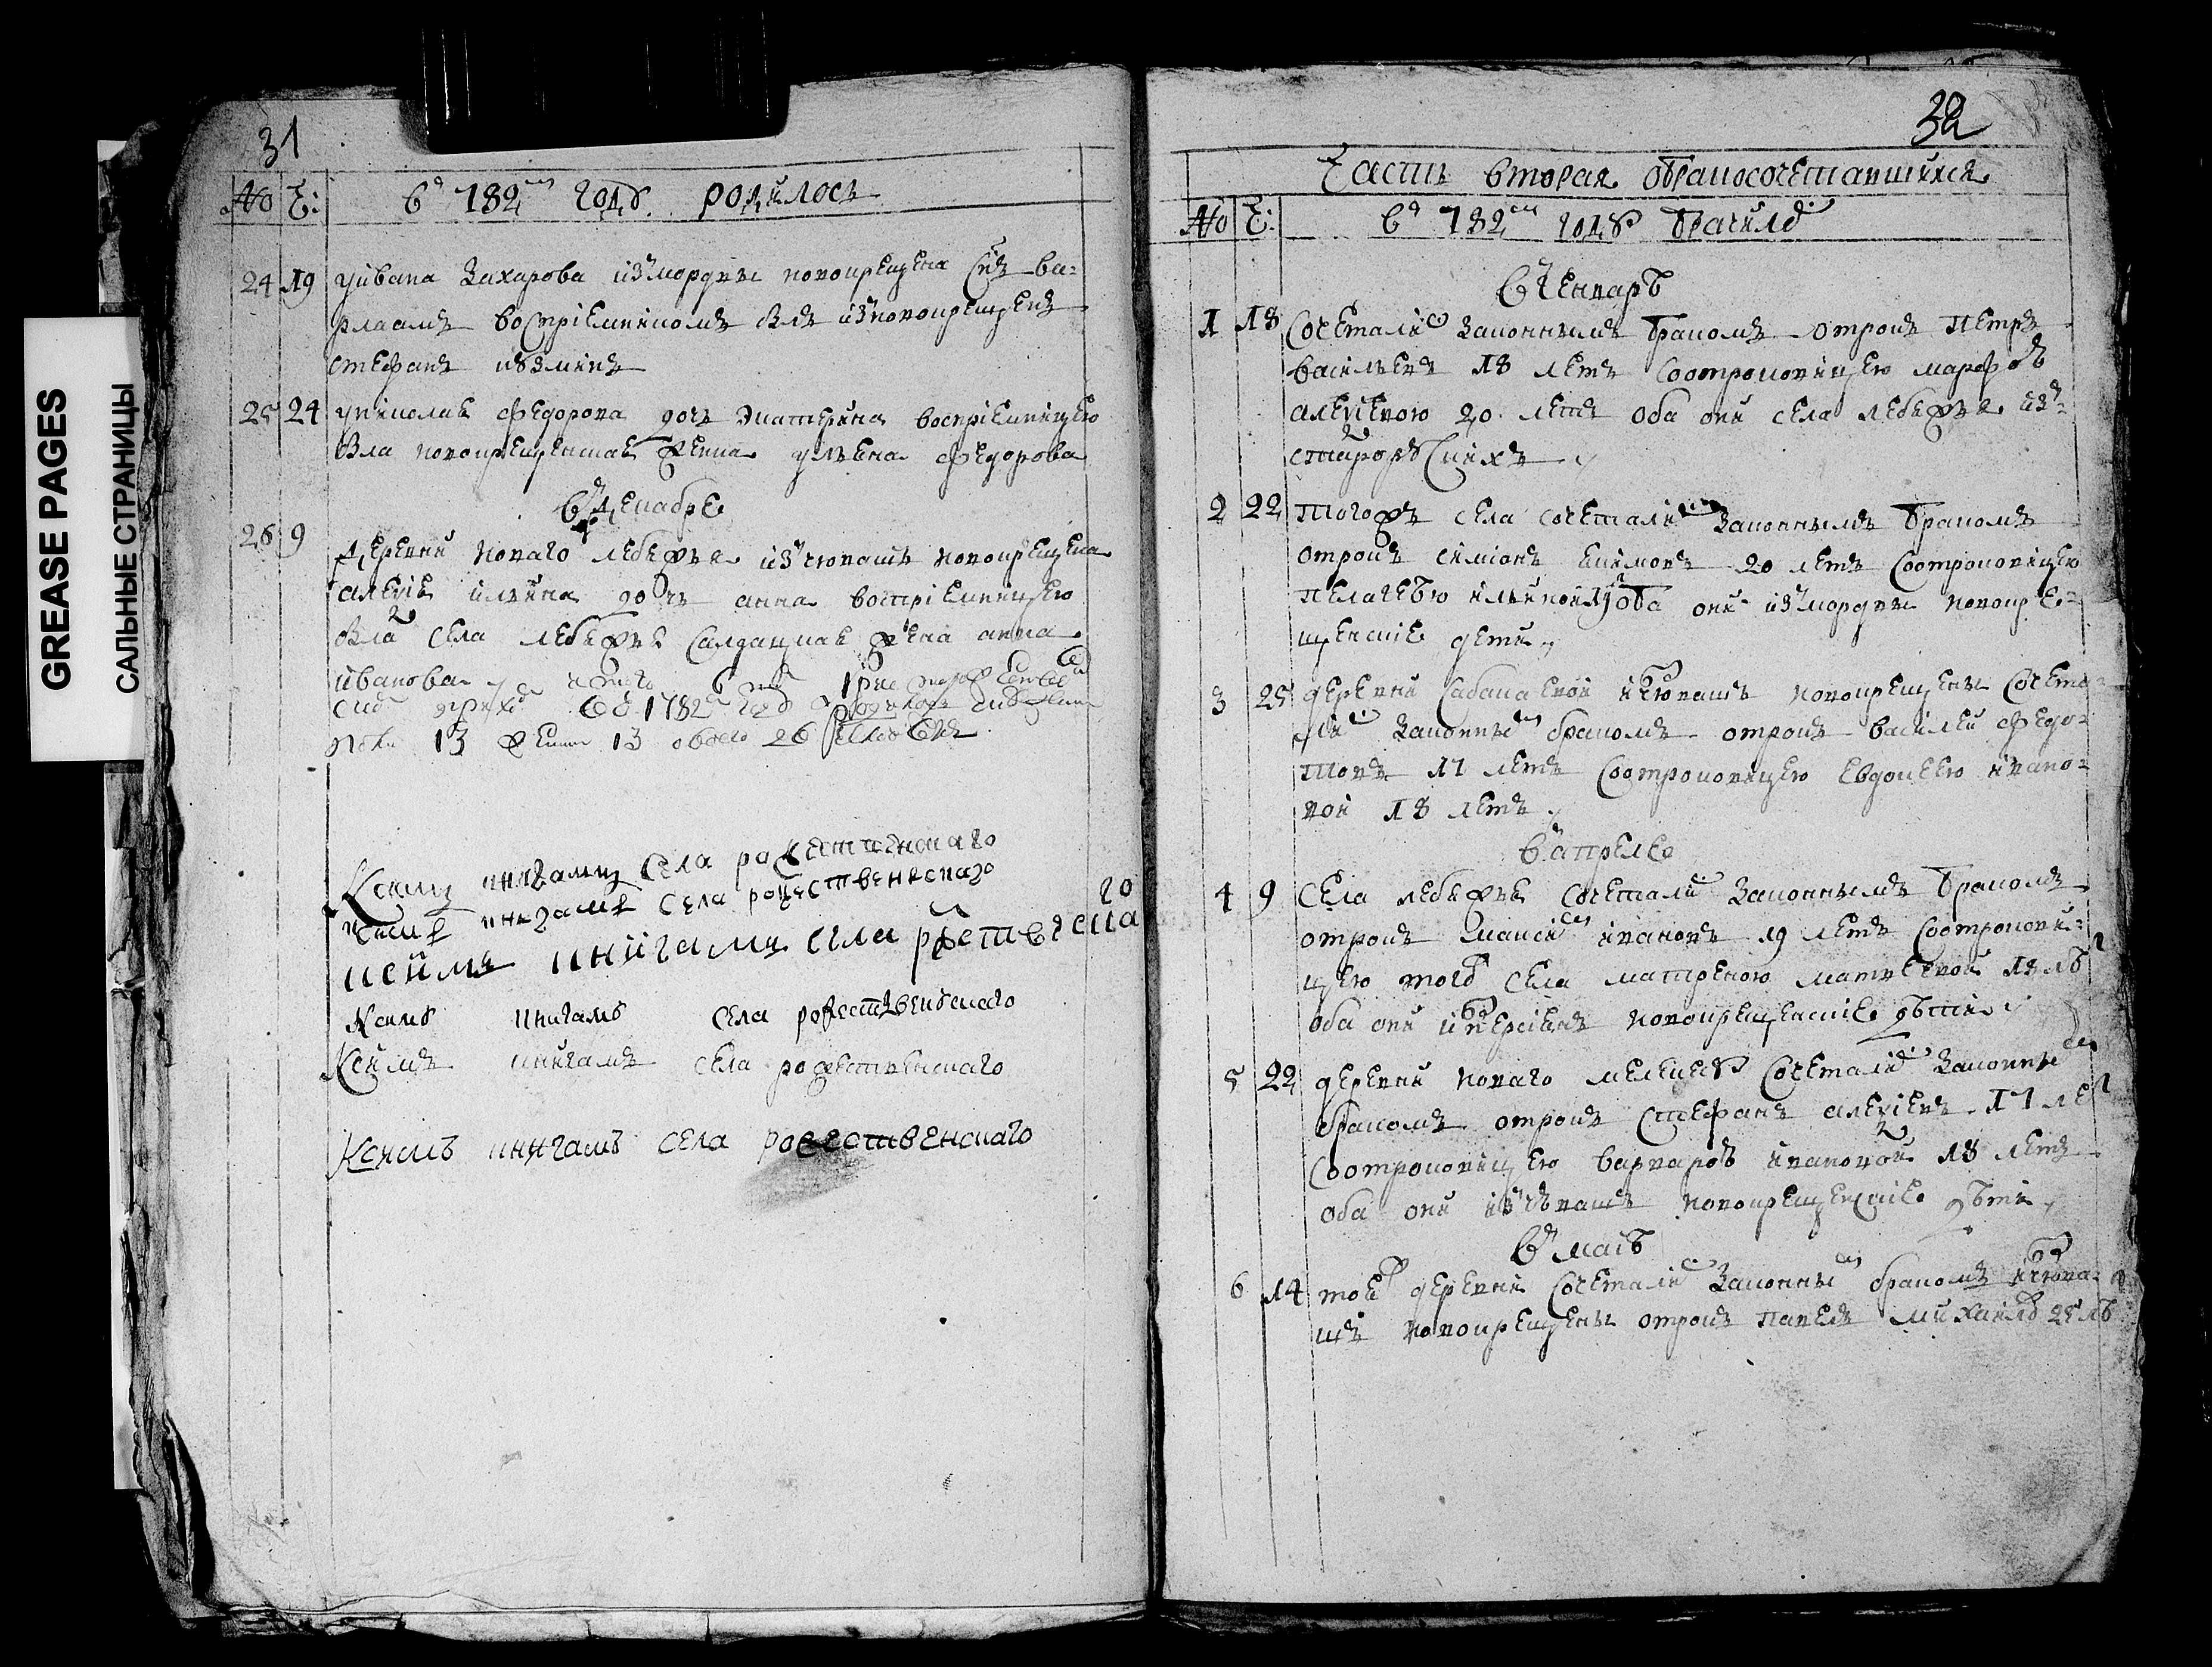 GREASE PAGES
САЛЬНЫЕ СТРАНИЦЫ
31
№ Ч: въ 782м году родилось
24 19 уивана Захарова изъмордвы новокрещена снъ ва-
рлаамъ востріемникомъ былъ изновокрещенъ
стефанъ кузминъ
25 24 униколая федорова дочь Экатерина воспріемницею
была новокрещенская женка ульена федорова
въ декабре
26 9 деревни новаго лебежья изъчювашъ новокрещена
алексея ильина дочь анна востріемницею
была села лебежья салдацкая жена анна
иванова
13 женска 13 обоего 26 человекъ
Ксимъ книгамъ села рожественскаго
Ксимъ книгамъ села рожественскаго
20
ксимъ книгамъ села
Ксимъ книгамъ села рожественскаго
Ксимъ книгамъ села рожественскаго
Ксимъ книгамъ села рожественскаго
32
Часть вторая обракосочетавшихся
№ Ч: въ 782м году брачило
въ генваре
1 18 Сочетались законнымъ бракомъ отрокъ петръ
васильевъ 18 летъ соотроковицею марфою
алексевою 20 летъ оба они села лебежья изъ-
2 22 тогожъ села сочетались законнымъ бракомъ
отрокъ симіонъ екимовъ 20 летъ соотроковицею
пелагеею ильиной оба они изъмордвы новокре-
щенские дети
3 25 деревни сабакаевой изчювашъ новокрещены сочета-
лись законнымъ бракомъ отрокъ василей федо-
товъ 17 летъ соотроковицею евдокеею ивано-
вой 18 летъ
въ апреле
4 9 Села лебежья сочетались законнымъ бракомъ
отрокъ максимъ ивановъ 19 летъ соотрокови-
цею тогож села матреною матвевой 18 лѣ
оба они новокрещенские дѣти
5 22 деревни новаго мелекесу сочетались законнымъ
бракомъ отрокъ Стефанъ алексеевъ 17 лет
соотроковицею варварою ивановой 18 летъ
оба они изъчювашъ новокрещенские дѣти
въ маѣ
6 14 той деревни сочетались законнымъ бракомъ изчюва-
шъ новокрещены отрокъ павелъ михаилов 25 лѣ